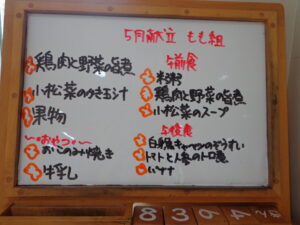 5月献立 もも組
鶏肉と野菜の旨煮
小松菜のかき玉汁
果物
〜おやつ〜
おこのみ焼き
牛乳
5前食
米粥
鶏肉と野菜の旨煮
小松菜のスープ
5後食
白身魚とキャベツのぞうすい
トマトと人参のトロ煮
バナナ
8
3
9
4